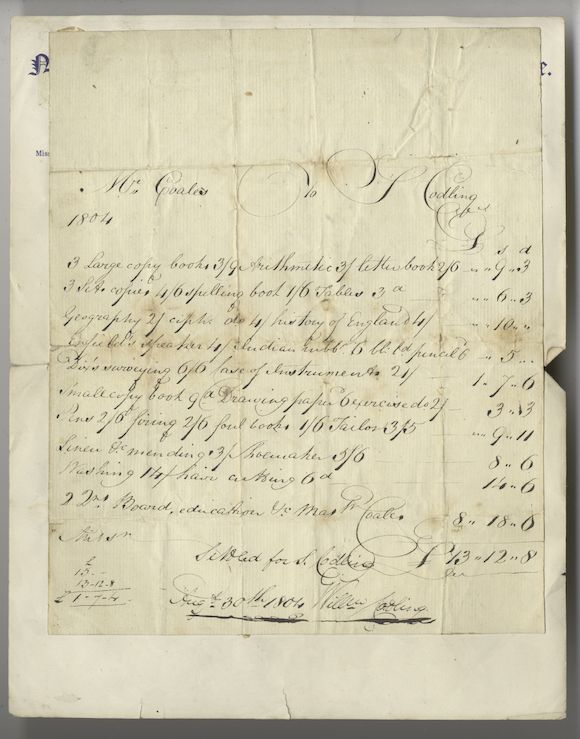 N e.
Miss
Mr. Coales To S Codling
1804
£ s d
3 Large copy books 3/9 Arithmetic 3/ letter book 2/6 „ „ 9 „ 3
3 Sets copies 4/6 spelling book 1/6 Tables 3d „ 6 „ 3
Geography 2/ ciphg do 4/ history of England 4/ „ 10 „ „
speaker 4/ Indian rubbr 6 bl: ld pencil 6 „ 5 „ „
surveying 6/6 Case of Instruments 21/ 1 „ 7 „ 6
Small copy book 9d Drawing paper 6 exercise do 2/ 3 „ 3
Pens 2/6 firing 2/6 foul books 1/6 Tailor 3/5 „ 9 „ 11
Linen &c mending 3/ Shoemaker 5/6 8 „ 6
Washing 14/ hair cutting 6d 14 „ 6
2 Qrs Board, education &c Masr Coales 8 „ 18 „ 6
£ 13 „ 12 „ 8
Settled for S. Codling
£
15 -
13-12-8
£ 1-7-4
Augt 30th 1804 Willm Codling